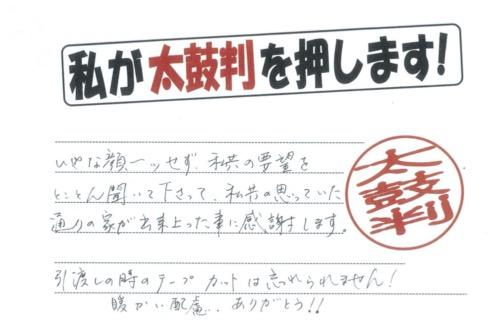 私が太鼓判を押します!
いやな顔一ッせず、私共の要望を
とことん聞いて下さって、私共の思っていた
通りの家が出来上った事に感謝します。
太鼓判
引渡しの時のテープカットは忘れられません!
暖かい配慮、ありがとう!!